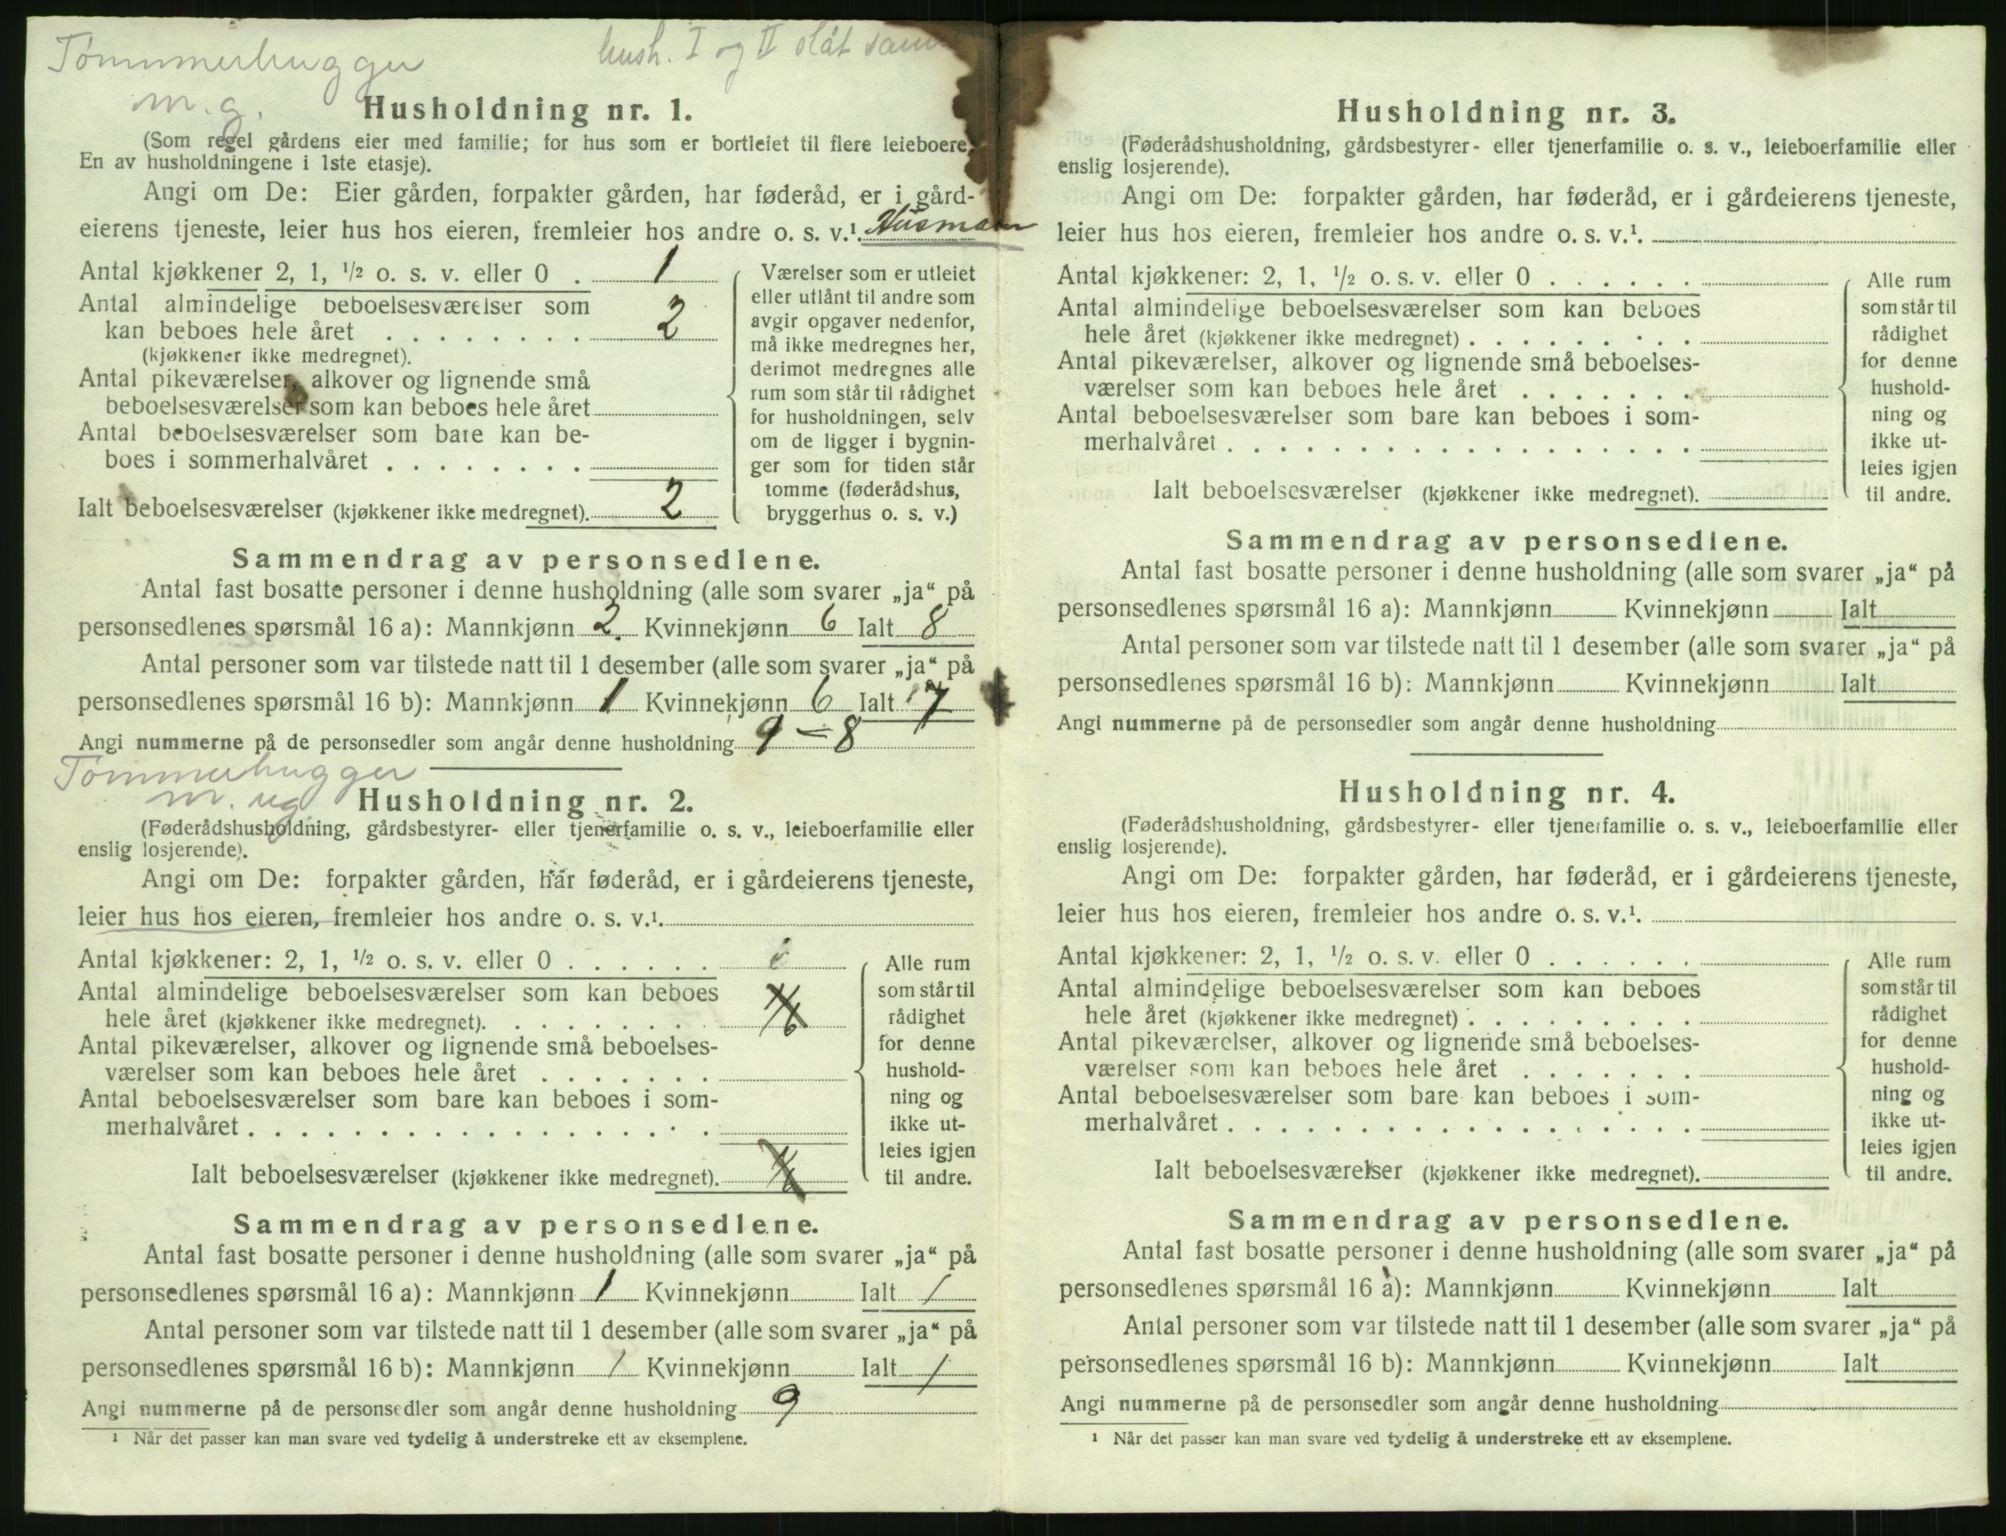 Tømmerhugger
hush. I og II slåt sam
m. g.
Husholdning nr. 1.
(Som regel gårdens eier med familie; for hus som er bortleiet til flere leieboere:
En av husholdningene i 1ste etasje).
Angi om De: Eier gården, forpakter gården, har føderåd, er i gård-
eierens tjeneste, leier hus hos eieren, fremleier hos andre o. s. v.¹. Husmann
Antal kjøkkener 2, 1, ½ o. s. v. eller 0 . 1
Antal almindelige beboelsesværelser som
kan beboes hele året . . . . . . . . 2
(kjøkkener ikke medregnet).
Antal pikeværelser, alkover og lignende små
beboelsesværelser som kan beboes hele året
Antal beboelsesværelser som bare kan be-
boes i sommerhalvåret . . . . . . . .
Ialt beboelsesværelser (kjøkkener ikke medregnet). 2
Værelser som er utleiet
eller utlånt til andre som
avgir opgaver nedenfor,
må ikke medregnes her,
derimot medregnes alle
rum som står til rådighet
for husholdningen, selv
om de ligger i bygnin-
ger som for tiden står
tomme (føderådshus,
bryggerhus o. s. v.)
Sammendrag av personsedlene.
Antal fast bosatte personer i denne husholdning (alle som svarer „ja“ på
personsedlenes spørsmål 16 a): Mannkjønn 2. Kvinnekjønn 6 Ialt 8
Antal personer som var tilstede natt til 1 desember (alle som svarer „ja“ på
personsedlenes spørsmål 16 b): Mannkjønn 1 Kvinnekjønn 6 Ialt 7
Angi nummerne på de personsedler som angår denne husholdning 1 — 8
Tømmerhugger
m. ug.
Husholdning nr. 2.
(Føderådshusholdning, gårdsbestyrer- eller tjenerfamilie o. s. v., leieboerfamilie eller
enslig losjerende).
Angi om De: forpakter gården, har føderåd, er i gårdeierens tjeneste,
leier hus hos eieren, fremleier hos andre o. s. v.¹.
Antal kjøkkener: 2, 1, ½ o. s. v. eller 0 . . . . . .
Antal almindelige beboelsesværelser som kan beboes
hele året (kjøkkener ikke medregnet). . . . . . . . .
Antal pikeværelser, alkover og lignende små beboelses-
værelser som kan beboes hele året . . . . . . .
Antal beboelsesværelser som bare kan beboes i som-
merhalvåret . . . . . . . . . . . . . . . . . .
Ialt beboelsesværelser (kjøkkener ikke medregnet).
Alle rum
som står til
rådighet
for denne
hushold-
ning og
ikke ut-
leies igjen
til andre.
Sammendrag av personsedlene.
Antal fast bosatte personer i denne husholdning (alle som svarer „ja“ på
personsedlenes spørsmål 16 a): Mannkjønn 1 Kvinnekjønn Ialt 1
Antal personer som var tilstede natt til 1 desember (alle som svarer „ja“ på
personsedlenes spørsmål 16 b): Mannkjønn 1 Kvinnekjønn Ialt 1
Angi nummerne på de personsedler som angår denne husholdning 9
¹ Når det passer kan man svare ved tydelig å understreke ett av eksemplene.
Husholdning nr. 3.
(Føderådshusholdning, gårdsbestyrer- eller tjenerfamilie o. s. v., leieboerfamilie eller
enslig losjerende).
Angi om De: forpakter gården, har føderåd, er i gårdeierens tjeneste,
leier hus hos eieren, fremleier hos andre o. s. v.¹.
Antal kjøkkener: 2, 1, ½ o. s. v. eller 0 . . . . . .
Antal almindelige beboelsesværelser som kan beboes
hele året (kjøkkener ikke medregnet) . . . . . . . . .
Antal pikeværelser, alkover og lignende små beboelses-
værelser som kan beboes hele året . . . . . . .
Antal beboelsesværelser som bare kan beboes i som-
merhalvåret . . . . . . . . . . . . . . . . . .
Ialt beboelsesværelser (kjøkkener ikke medregnet).
Alle rum
som står til
rådighet
for denne
hushold-
ning og
ikke ut-
leies igjen
til andre.
Sammendrag av personsedlene.
Antal fast bosatte personer i denne husholdning (alle som svarer „ja“ på
personsedlenes spørsmål 16 a): Mannkjønn Kvinnekjønn Ialt
Antal personer som var tilstede natt til 1 desember (alle som svarer „ja“ på
personsedlenes spørsmål 16 b): Mannkjønn Kvinnekjønn Ialt
Angi nummerne på de personsedler som angår denne husholdning
Husholdning nr. 4.
(Føderådshusholdning, gårdsbestyrer- eller tjenerfamilie o. s. v., leieboerfamilie eller
enslig losjerende).
Angi om De: forpakter gården, har føderåd, er i gårdeierens tjeneste,
leier hus hos eieren, fremleier hos andre o. s. v.¹.
Antal kjøkkener: 2, 1, ½ o. s. v. eller 0 . . . . . .
Antal almindelige beboelsesværelser som kan beboes
hele året (kjøkkener ikke medregnet) . . . . . . . . .
Antal pikeværelser, alkover og lignende små beboelses-
værelser som kan beboes hele året . . . . . . .
Antal beboelsesværelser som bare kan beboes i som-
merhalvåret . . . . . . . . . . . . . . . . . .
Ialt beboelsesværelser (kjøkkener ikke medregnet).
Alle rum
som står til
rådighet
for denne
hushold-
ning og
ikke ut-
leies igjen
til andre.
Sammendrag av personsedlene.
Antal fast bosatte personer i denne husholdning (alle som svarer „ja“ på
personsedlenes spørsmål 16 a): Mannkjønn Kvinnekjønn Ialt
Antal personer som var tilstede natt til 1 desember (alle som svarer „ja“ på
personsedlenes spørsmål 16 b): Mannkjønn Kvinnekjønn Ialt
Angi nummerne på de personsedler som angår denne husholdning
¹ Når det passer kan man svare ved tydelig å understreke ett av eksemplene.